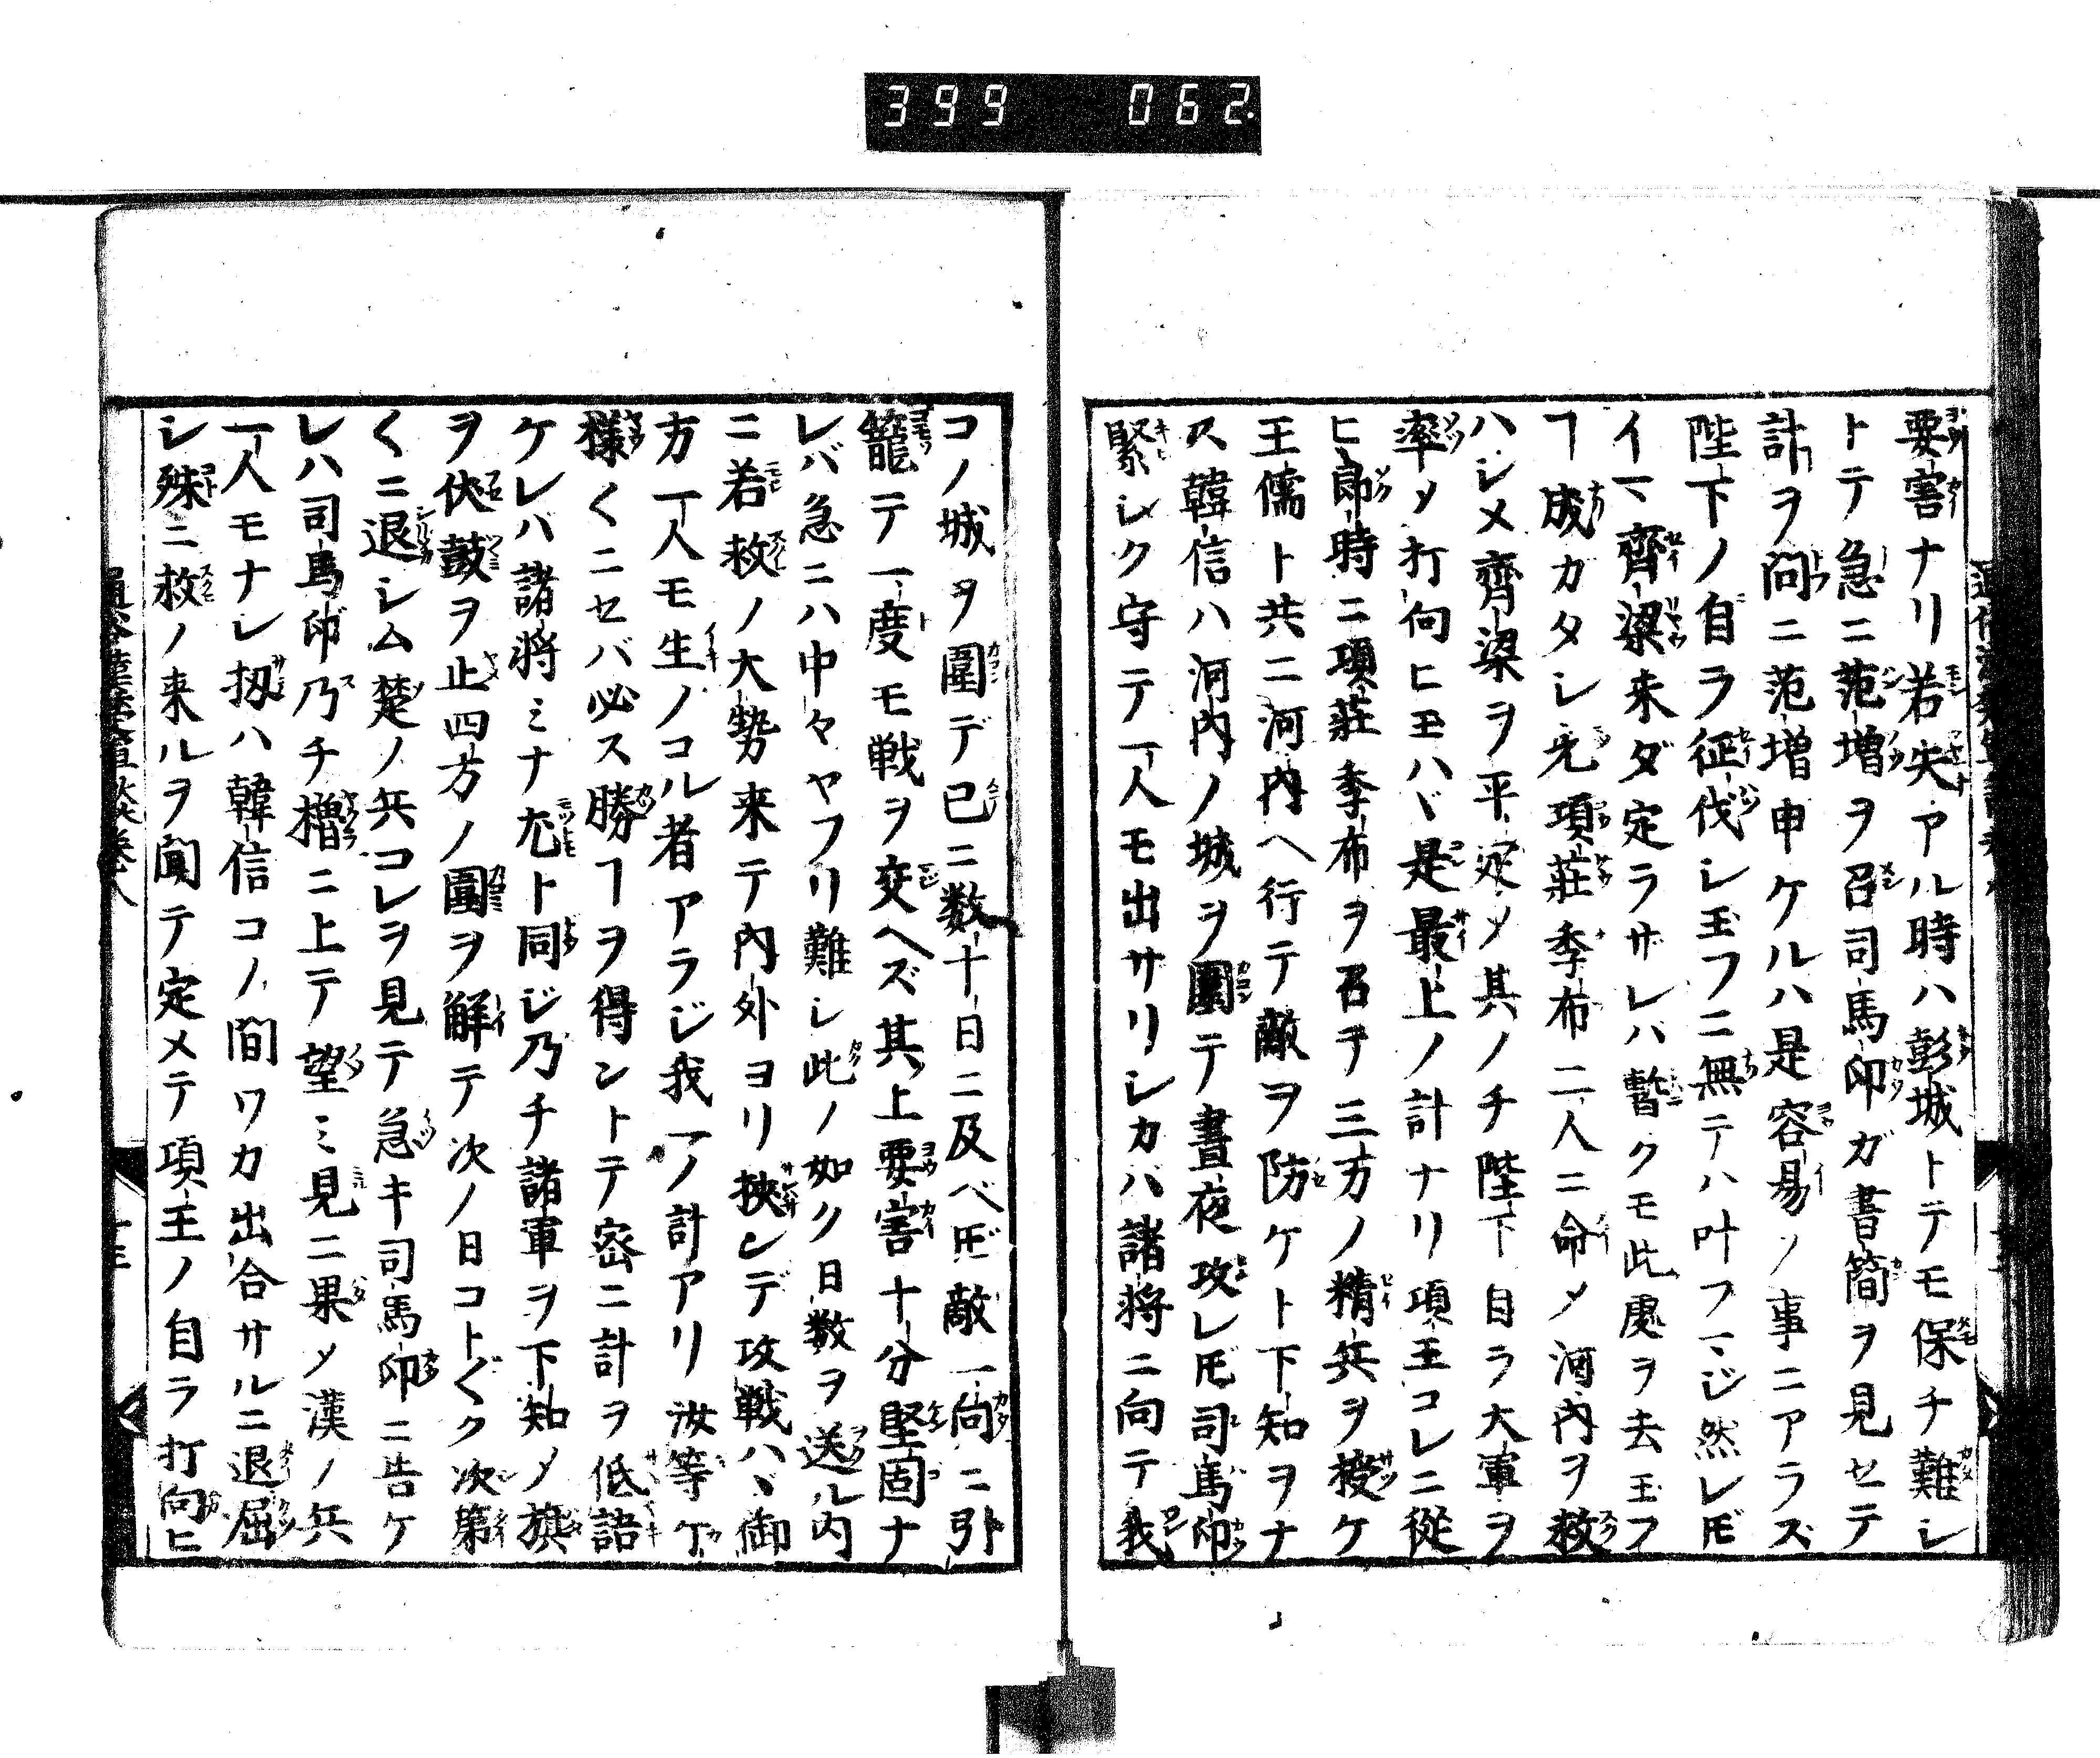 399 062.
要害ナリ若失アル時ハ彭城トテモ保チ難シ
トテ急ニ范増ヲ召司馬卬ガ書簡ヲ見セテ
計ヲ問ニ范増申ケルハ是容易ノ事ニアラズ
陛下ノ自ラ征伐シ玉フニ無テハ叶フマジ然レ𪜈
イマ齊梁未ダ定ラサレハ暫クモ此處ヲ去玉フ
ヿ成カタシ先項莊季布二人ニ命メ河内ヲ救
ハシメ齊梁ヲ平定メ其ノチ陛下自ラ大軍ヲ
率メ打向ヒ玉ハヾ是最上ノ計ナリ項王コレニ從
ヒ即時ニ項莊季布ヲ召チ三万ノ精兵ヲ授ケ
王儒ト共ニ河内ヘ行テ敵ヲ防ケト下知ヲナ
ス韓信ハ河内ノ城ヲ圍テ晝夜攻レ𪜈司馬卬
緊シク守テ一人モ出サリシカハ諸将ニ向テ我
コノ城ヲ圍デ已ニ数十日ニ及ベ𪜈敵一向ニ引
籠テ一度モ戦ヲ交ヘズ其上要害十分堅固ナ
レバ急ニハ中々ヤフリ難シ此ノ如ク日数ヲ送ル内
ニ若救ノ大勢来テ内外ヨリ挾レデ攻戦ハヾ御
方一人モ生ノコル者アラジ我一ノ計アリ汝等ケ
様〱ニセバ必ス勝ヿヲ得ントテ密ニ計ヲ低語
ケレハ諸将ミナ尤ト同ジ乃チ諸軍ヲ下知メ旗
ヲ伏鼓ヲ止四方ノ圍ヲ解テ次ノ日コト〲ク次第
〱ニ退シム楚ノ兵コレヲ見テ急キ司馬卬ニ告ケ
レハ司馬卬乃チ櫓ニ上テ望ミ見ニ果メ漢ノ兵
一人モナシ扨ハ韓信コノ間ワカ出合サルニ退屈
シ殊ニ救ノ来ルヲ聞テ定メテ項王ノ自ラ打向ヒ